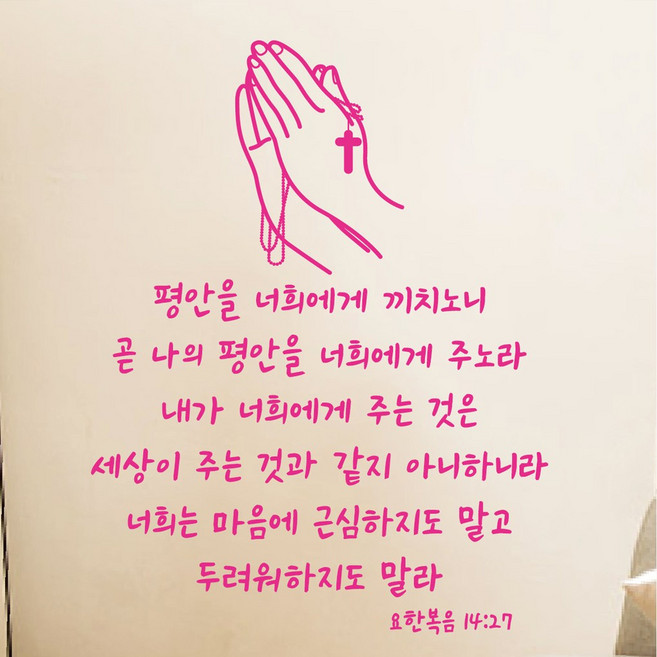 평안을 너희에게 끼치노니
곧 나의 평안을 너희에게 주노라
내가 너희에게 주는 것은
세상이 주는 것과 같지 아니하니라
너희는 마음에 근심하지도 말고
두려워하지도 말라
요한복음 14:27